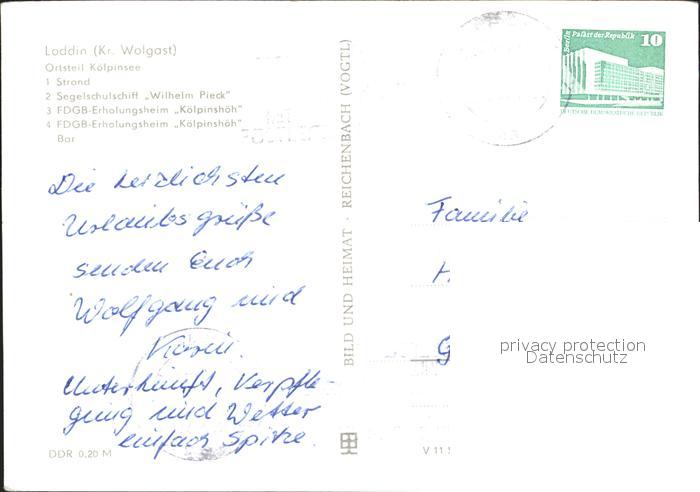 Loddin (Kr. Wolgast)
Ortsteil Kölpinsee
1 Strand
2 Segelschulschiff „Wilhelm Pieck"
3 FDGB-Erholungsheim „Kölpinshöh"
4 FDGB-Erholungsheim „Kölpinshöh"
Bar
Die herzlichsten
Urlaubsgrüße
senden Euch
Wolfgang und
Karin.
Unterkunft, Verpfle-
gung und Wetter
einfach Spitze.
DDR 0,20 M
BILD UND HEIMAT · REICHENBACH (VOGTL)
V 11
Berlin Palast der Republik 10
DEUTSCHE DEMOKRATISCHE REPUBLIK
Familie
H.
G
privacy protection
Datenschutz